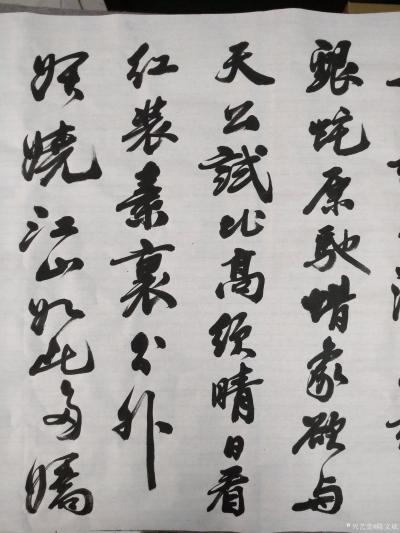 銀蛇原馳蜡象欲与
天公試比高須晴日看
红装素裹分外
妖嬈江山如此多嬌